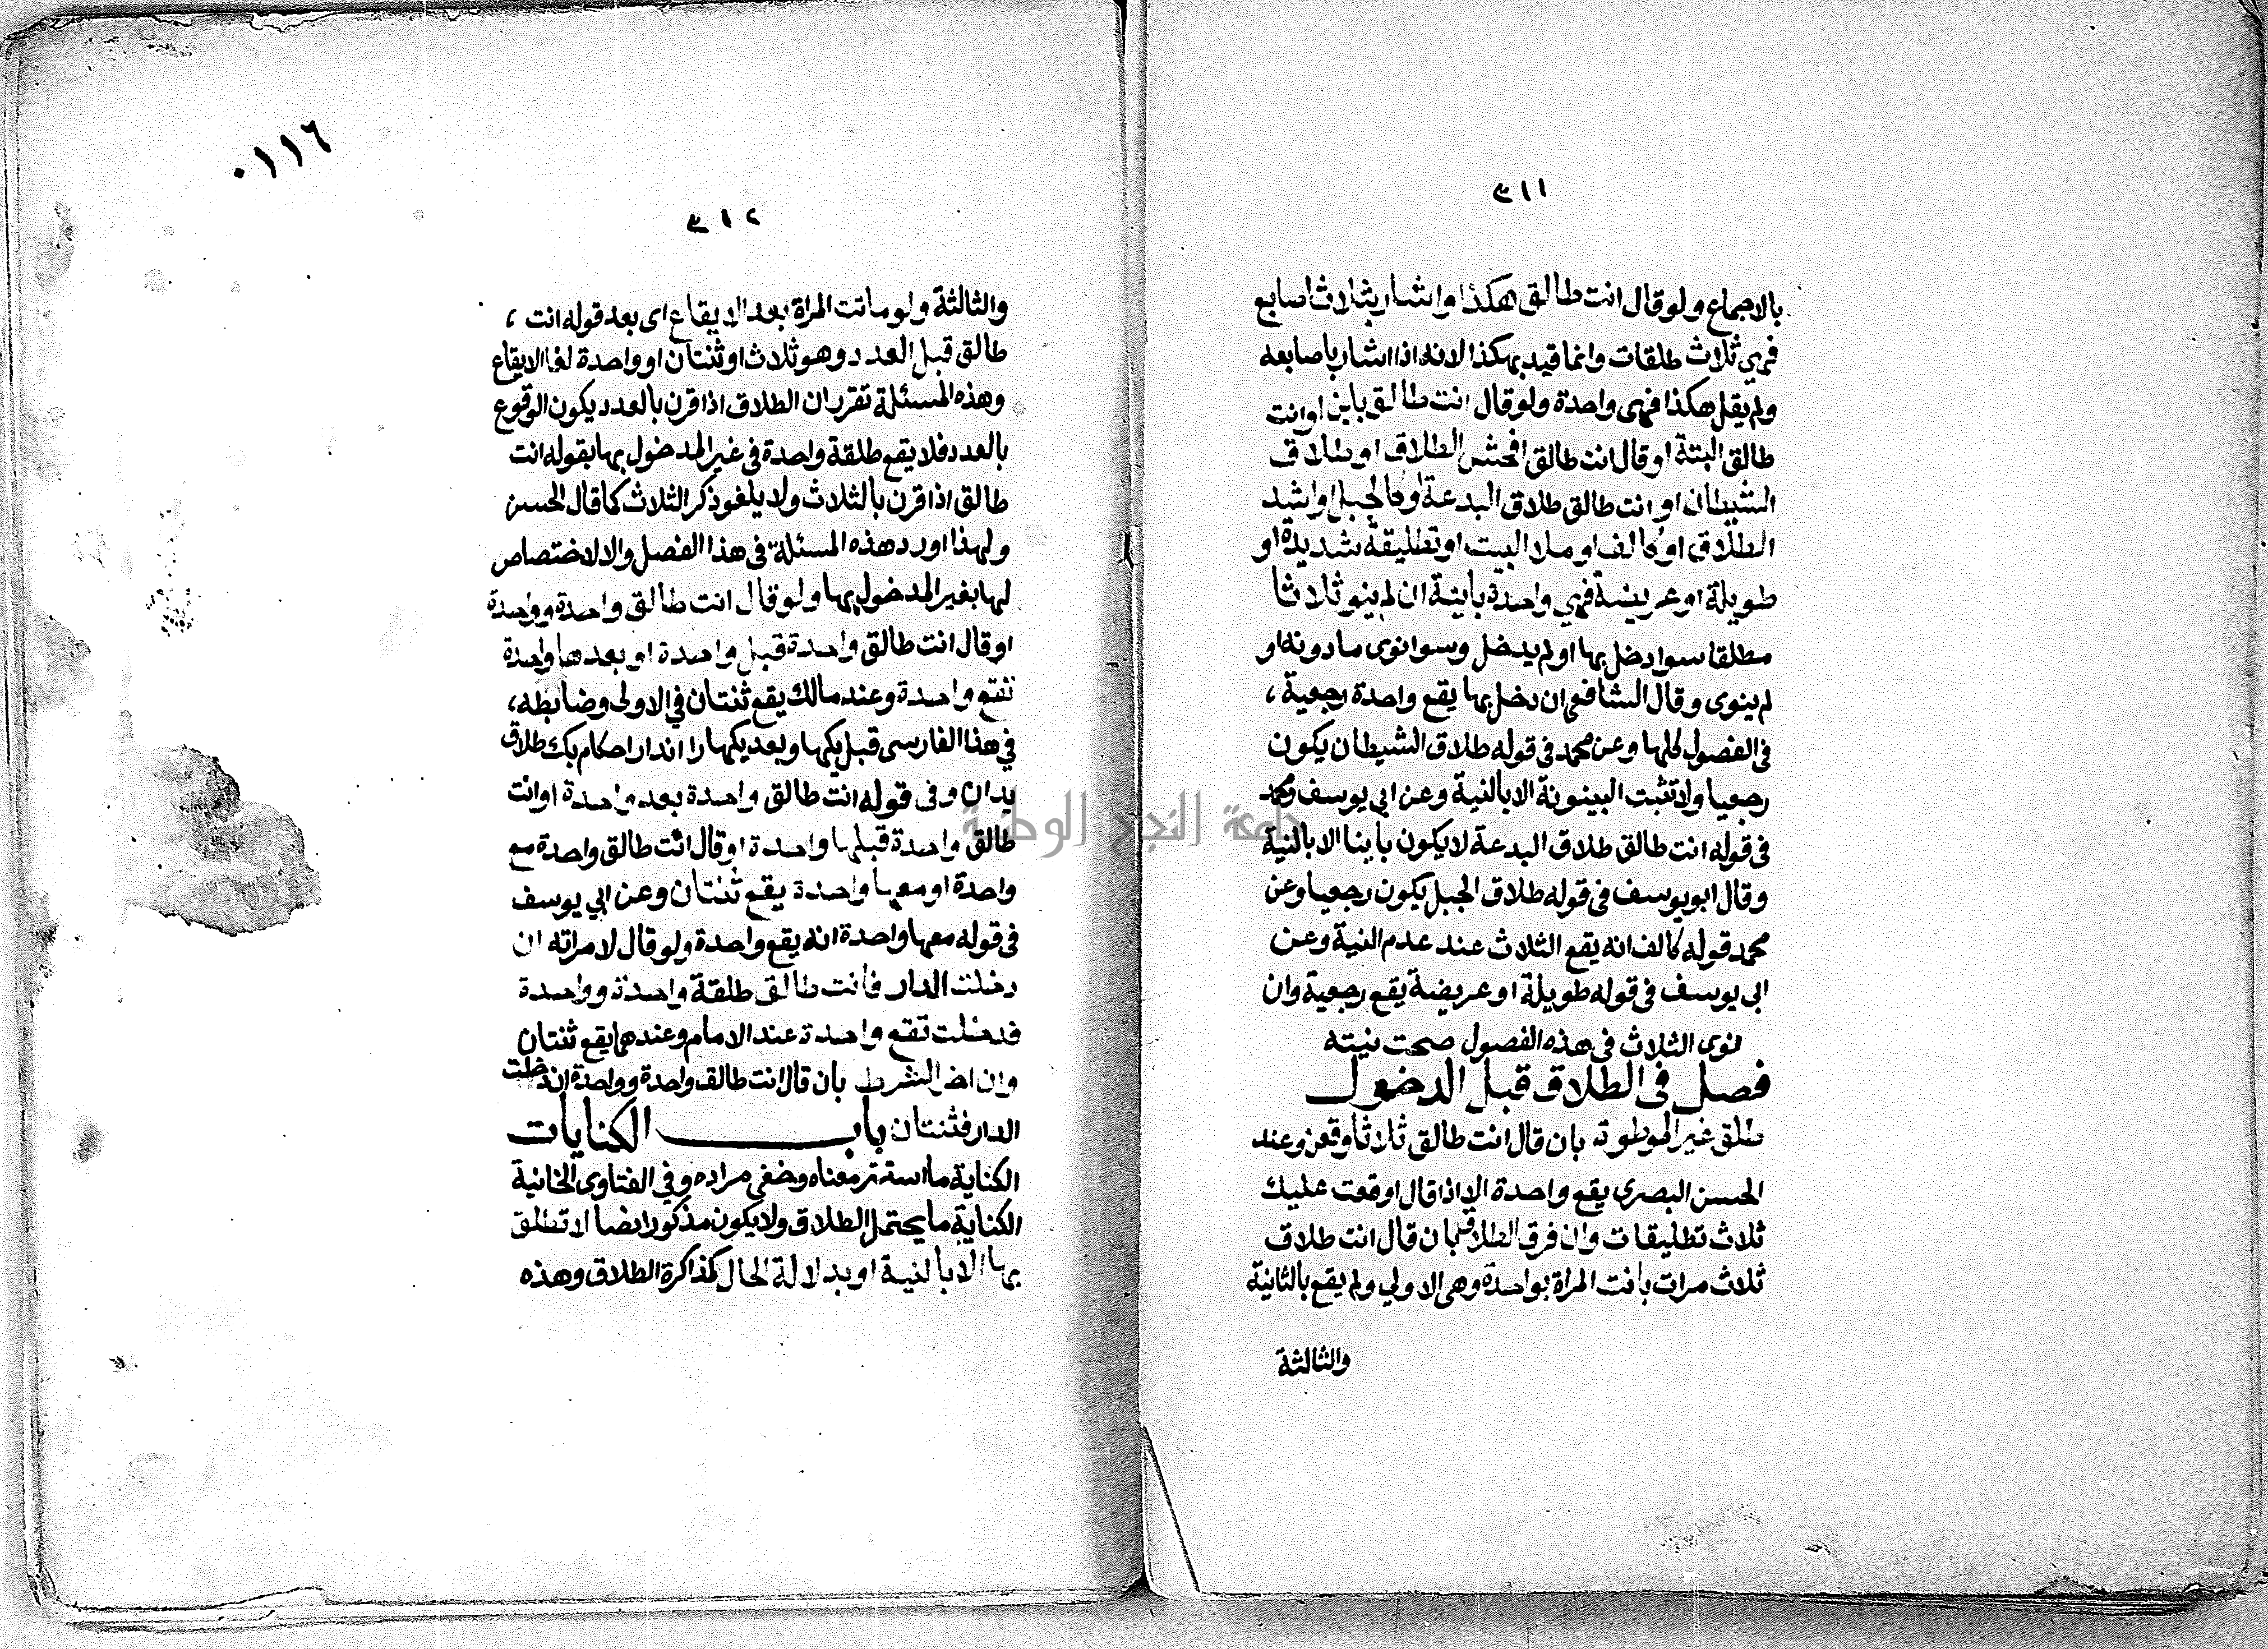 ٣١١
بالاجماع ولو قال انت طالق هكذا واشار بثلاث اصابع
فهي ثلاث طلقات وانما قيد بهكذا لانه اذا اشار باصابعه
ولم يقل هكذا فهى واحدة ولو قال انت طالق باين او انت
طالق البتة او قال انت طالق افحش الطلاق او طلاق
الشيطان او انت طالق طلاق البدعة او كالجبل او اشد
الطلاق او كالف او ملا البيت او تطليقة شديدة او
طويلة او عريضة فهي واحدة باينة ان لم ينو ثلاثا
مطلقا سوا دخل بها او لم يدخل وسوا نوى مادونه او
لم ينوى وقال الشافعى ان دخل بها يقع واحدة رجعية ،
فى الفصول كلها وعن محمد فى قوله طلاق الشيطان يكون
رجعيا ولا تثبت البينونة الا بالنية وعن ابي يوسف ومحمد
فى قوله انت طالق طلاق البدعة لا يكون باينا الا بالنية
وقال ابو يوسف فى قوله طلاق الجبل يكون رجعيا وعن
محمد قوله كالف انه يقع الثلاث عند عدم النية وعن
ابى يوسف فى قوله طويلة او عريضة يقع رجعية وان
نوى الثلاث فى هذه الفصول صحت نيته
فصل فى الطلاق قبل الدخول
طلق غير الموطوة بان قال انت طالق ثلاثا وقعن وعند
الحسن البصرى يقع واحدة الا اذا قال اوقعت عليك
ثلاث تطليقات وان فرق الطلاق بان قال انت طلاق
ثلاث مرات بانت المراة بواحدة وهى الاولي ولم يقع بالثانية
والثالثة
٠١١٦
٣١٢
والثالثة ولو ماتت المراة بعد الايقاع اى بعد قوله انت ،
طالق قبل العدد وهو ثلاث او ثنتان او واحدة لغا الايقاع
وهذه المسئلة تقرر ان الطلاق اذا قرن بالعدد يكون الوقوع
بالعدد فلا يقع طلقة واحدة فى غير المدخول بها بقوله انت
طالق اذا قرن بالثلاث ولا يلغو ذكر الثلاث كما قال الحسن
ولهذا اورد هذه المسئلة فى هذا الفصل والا لا اختصاص
لها بغير المدخول بها ولو قال انت طالق واحدة وواحدة
او قال انت طالق واحدة قبل واحدة او بعدها واحدة
تقع واحدة وعند مالك يقع ثنتان في الاولى وضابطه ،
في هذا الفارسى قبل يكها وبعد يكها را اندار احكام يك طلاق
بدان وفى قوله انت طالق واحدة بعد واحدة او انت
طالق واحدة قبلها واحدة او قال انت طالق واحدة مع
واحدة او معها واحدة يقع ثنتان وعن ابي يوسف
فى قوله معها واحدة انه يقع واحدة ولو قال لامراته ان
دخلت الدار فانت طالق طلقة واحدة وواحدة
فدخلت تقع واحدة عند الامام وعندهما يقع ثنتان
وان اخر الشرط بان قال انت طالق واحدة وواحدة ان دخلت
الدار فثنتان باب الكنايات
الكناية ما استتر معناه وخفى مراده وفي الفتاوى الخانية
الكناية ما يحتمل الطلاق ولا يكون مذكورا نصا لا تطلق
بها الا بالنية او بدلالة الحال كمذاكرة الطلاق وهذه
جامعة النجاح الوطنية